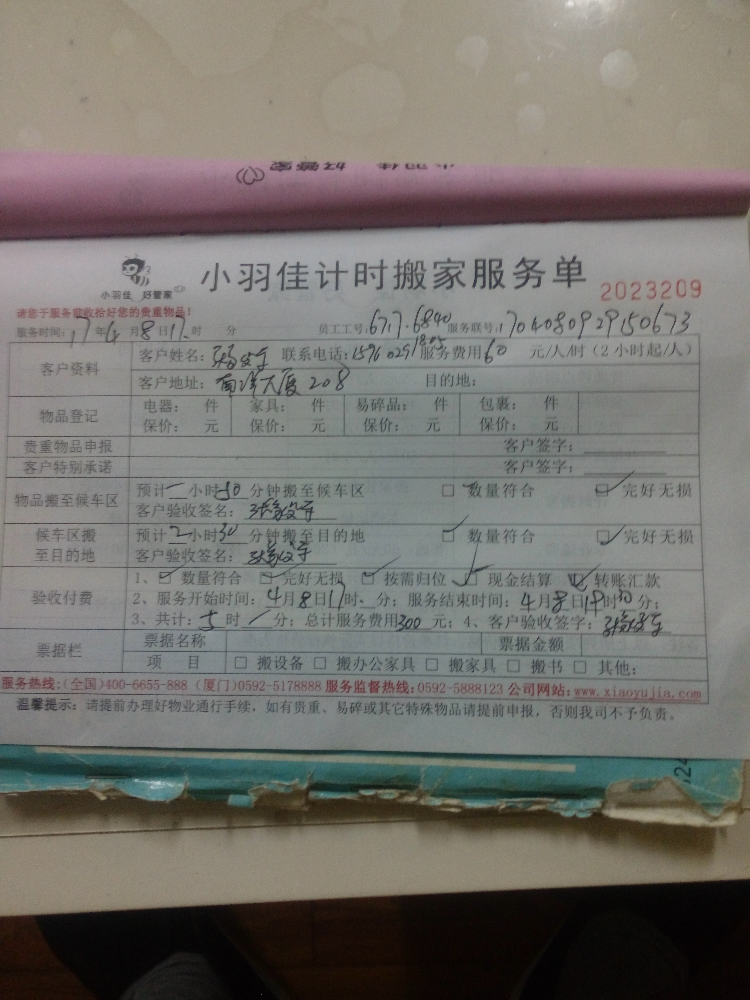 小羽佳 好管家
小羽佳计时搬家服务单
2023209
请您于服务前收拾好您的贵重物品!
服务时间: 17年4月8日17时 分 员工工号:6717·6840 服务联号:170408092915067​3
客户资料
客户姓名: 联系电话: 服务费用60元/人/时(2小时起/人)
客户地址:南洋大厦208 目的地:
物品登记
电器: 件 家具: 件 易碎品: 件 包裹: 件
保价: 元 保价: 元 保价: 元 保价: 元
贵重物品申报 客户签字:
客户特别承诺 客户签字:
物品搬至候车区
预计一小时30分钟搬至候车区 □数量符合 □完好无损
客户验收签名:
候车区搬至目的地
预计2小时30分钟搬至目的地 □数量符合 □完好无损
客户验收签名:
验收付费
1、□数量符合 □完好无损 □按需归位 □现金结算 □转账汇款
2、服务开始时间:4月8日17时 分; 服务结束时间:4月8日19时 分;
3、共计: 时 分; 总计服务费用300元; 4、客户验收签字:
票据栏
票据名称 票据金额
项 目 □搬设备 □搬办公家具 □搬家具 □搬书 □其他:
服务热线:(全国)400-6655-888 (厦门)0592-5178888 服务监督热线:0592-5888123 公司网站:www.xiaoyujia.com
温馨提示:请提前办理好物业通行手续,如有贵重、易碎或其它特殊物品请提前申报,否则我司不予负责。